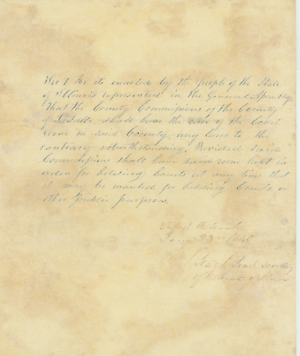 Sec 1 Be it enacted by the People of the State
of Illinois represented in the General Assembly
That the County Commissioners of the County
of shall have the use of the Court
room in said County, any law to the
contrary notwithstanding, Provided said
Commissioners shall have same room kept in
order for holding Courts at any time that
it may be wanted for holding Courts or
other Public purposes.
of the